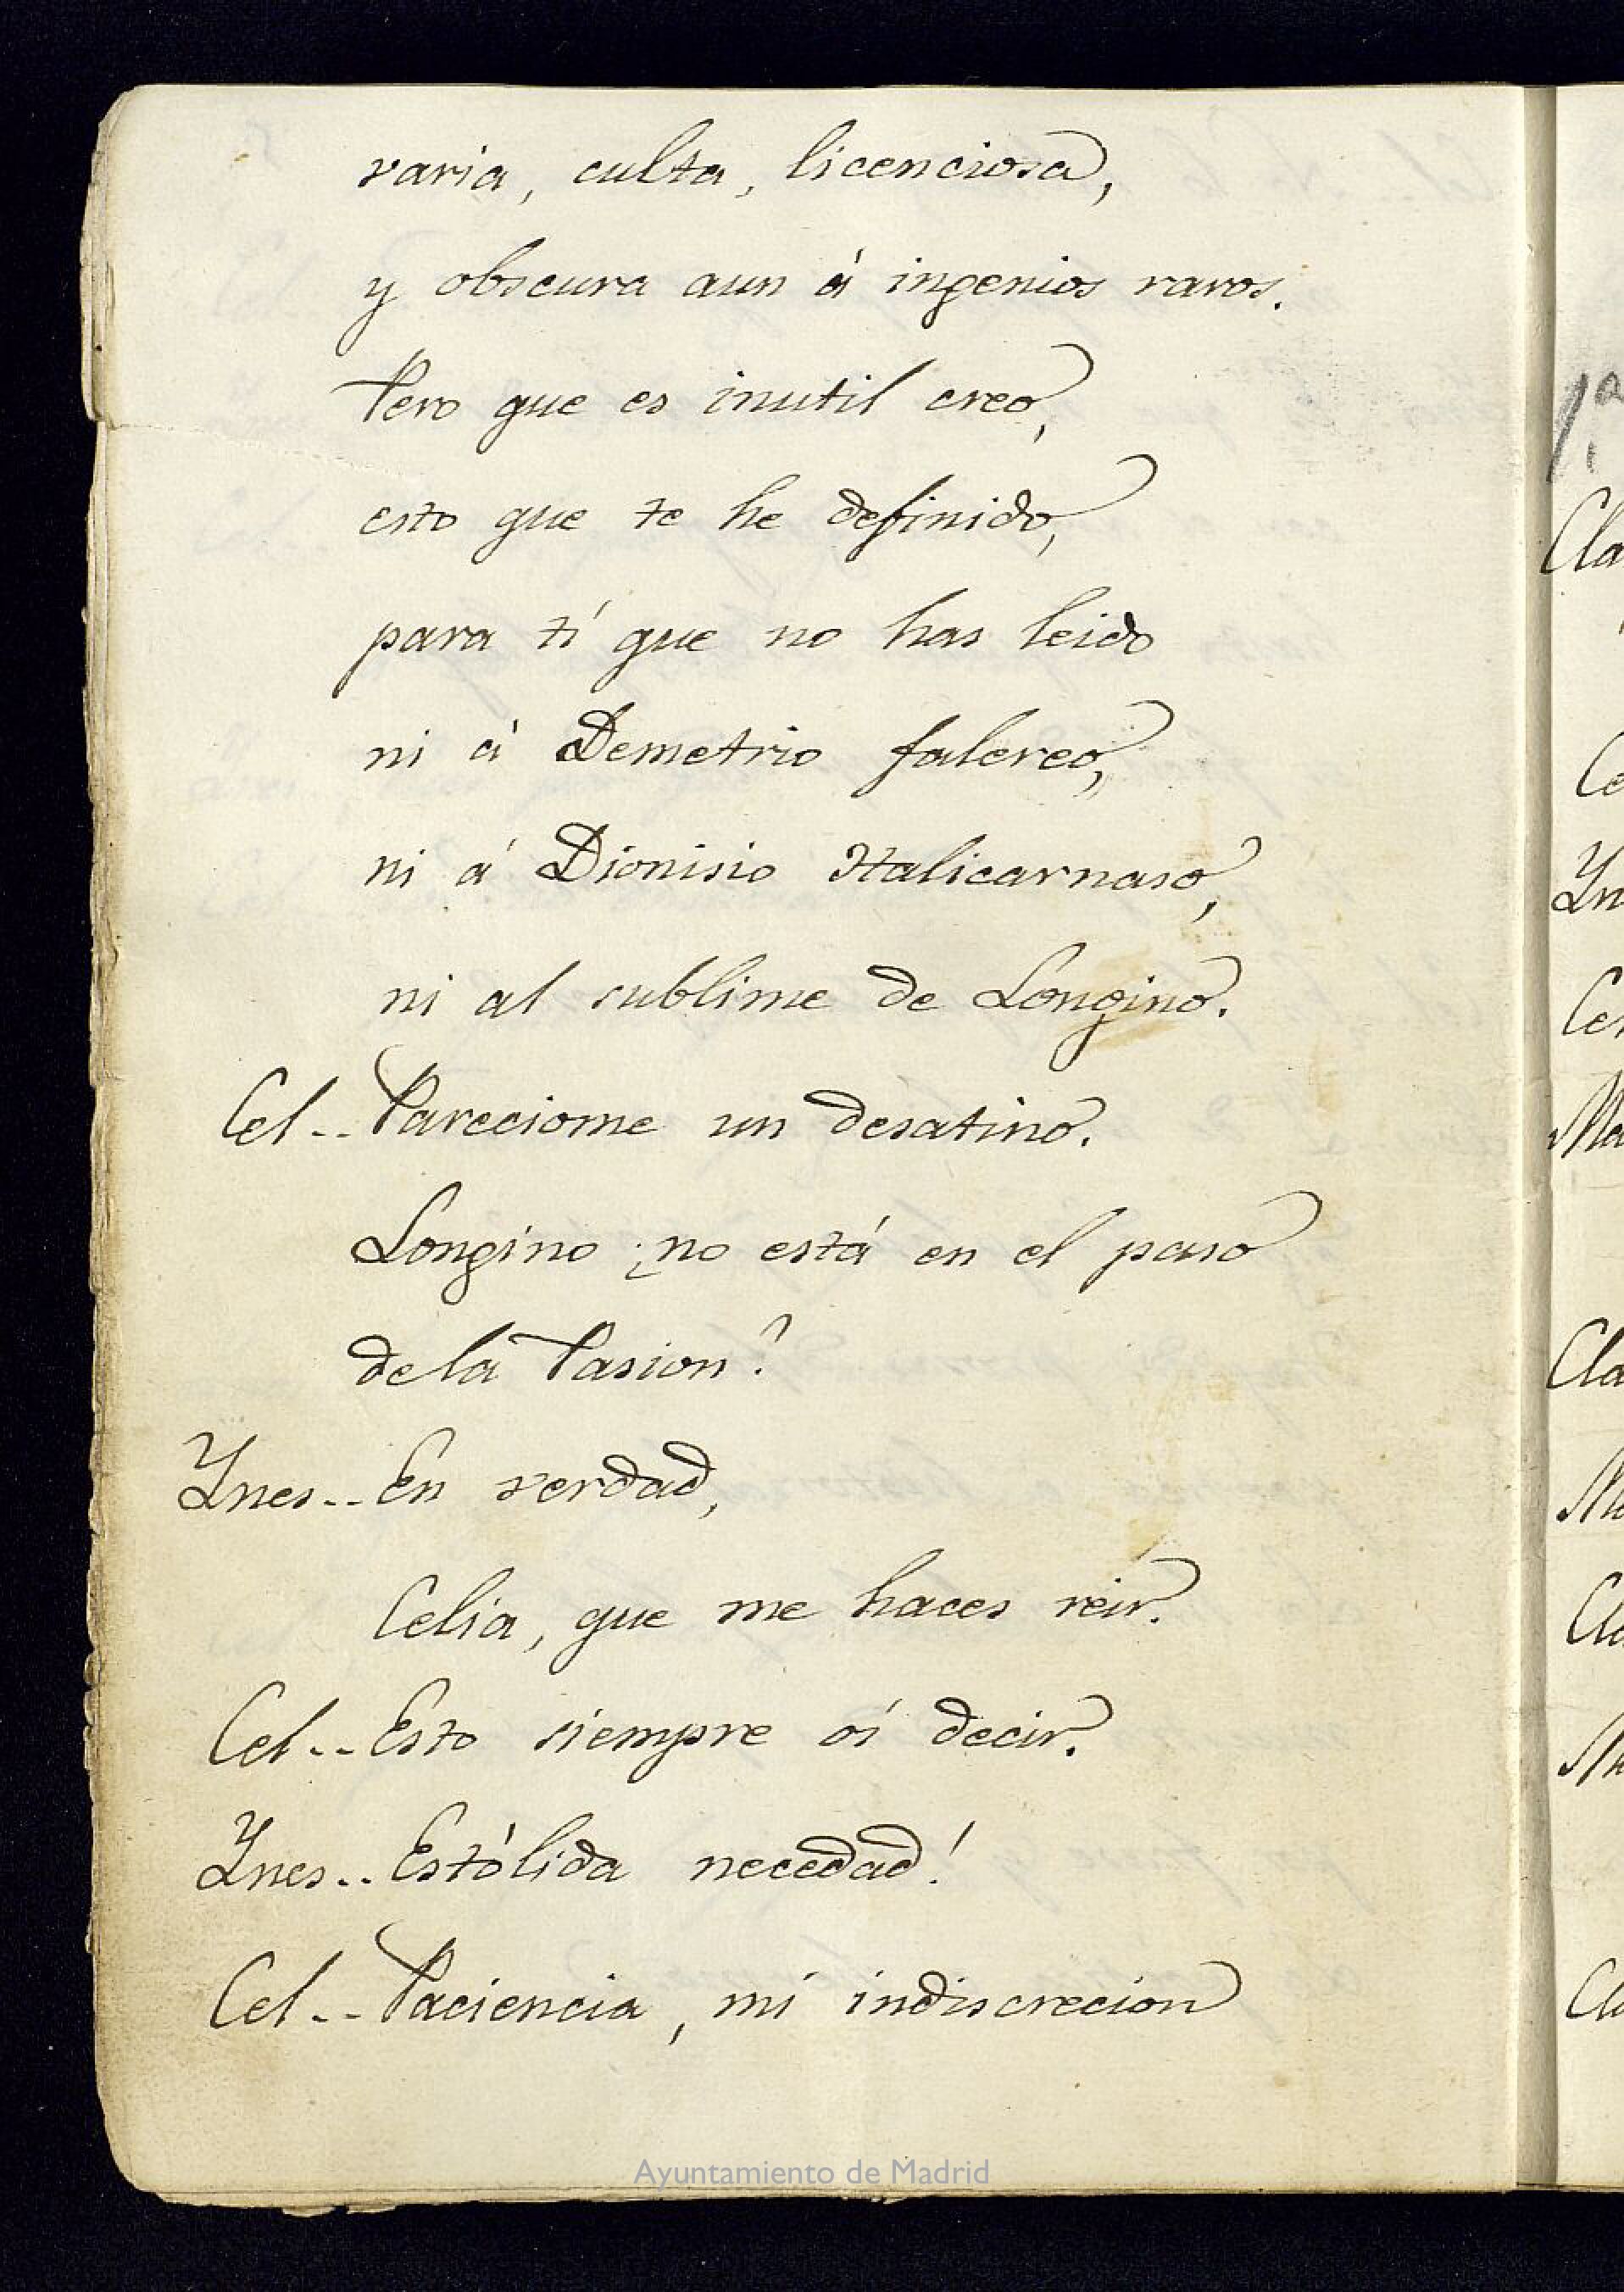 varia, culta, licenciosa,
y obscura aun á ingenios raros.
Pero que es inutil creo,
esto que te he definido,
para tí que no has leido
ni á Demetrio falereo,
ni á Dionisio Halicarnaso,
ni al sublime de Longino.
Cel.. Pareciome un desatino.
Longino ¿no está en el paso
de la Pasion?
Ynes.. En verdad,
Celia, que me haces reir.
Cel.. Esto siempre oí decir.
Ynes.. Estólida necedad!
Cel.. Paciencia, mi indiscrecion
Ayuntamiento de Madrid
1ª
Cla
Ce
Yn
Cel
Ma
Cla
Ma
Cla
Ma
Cla